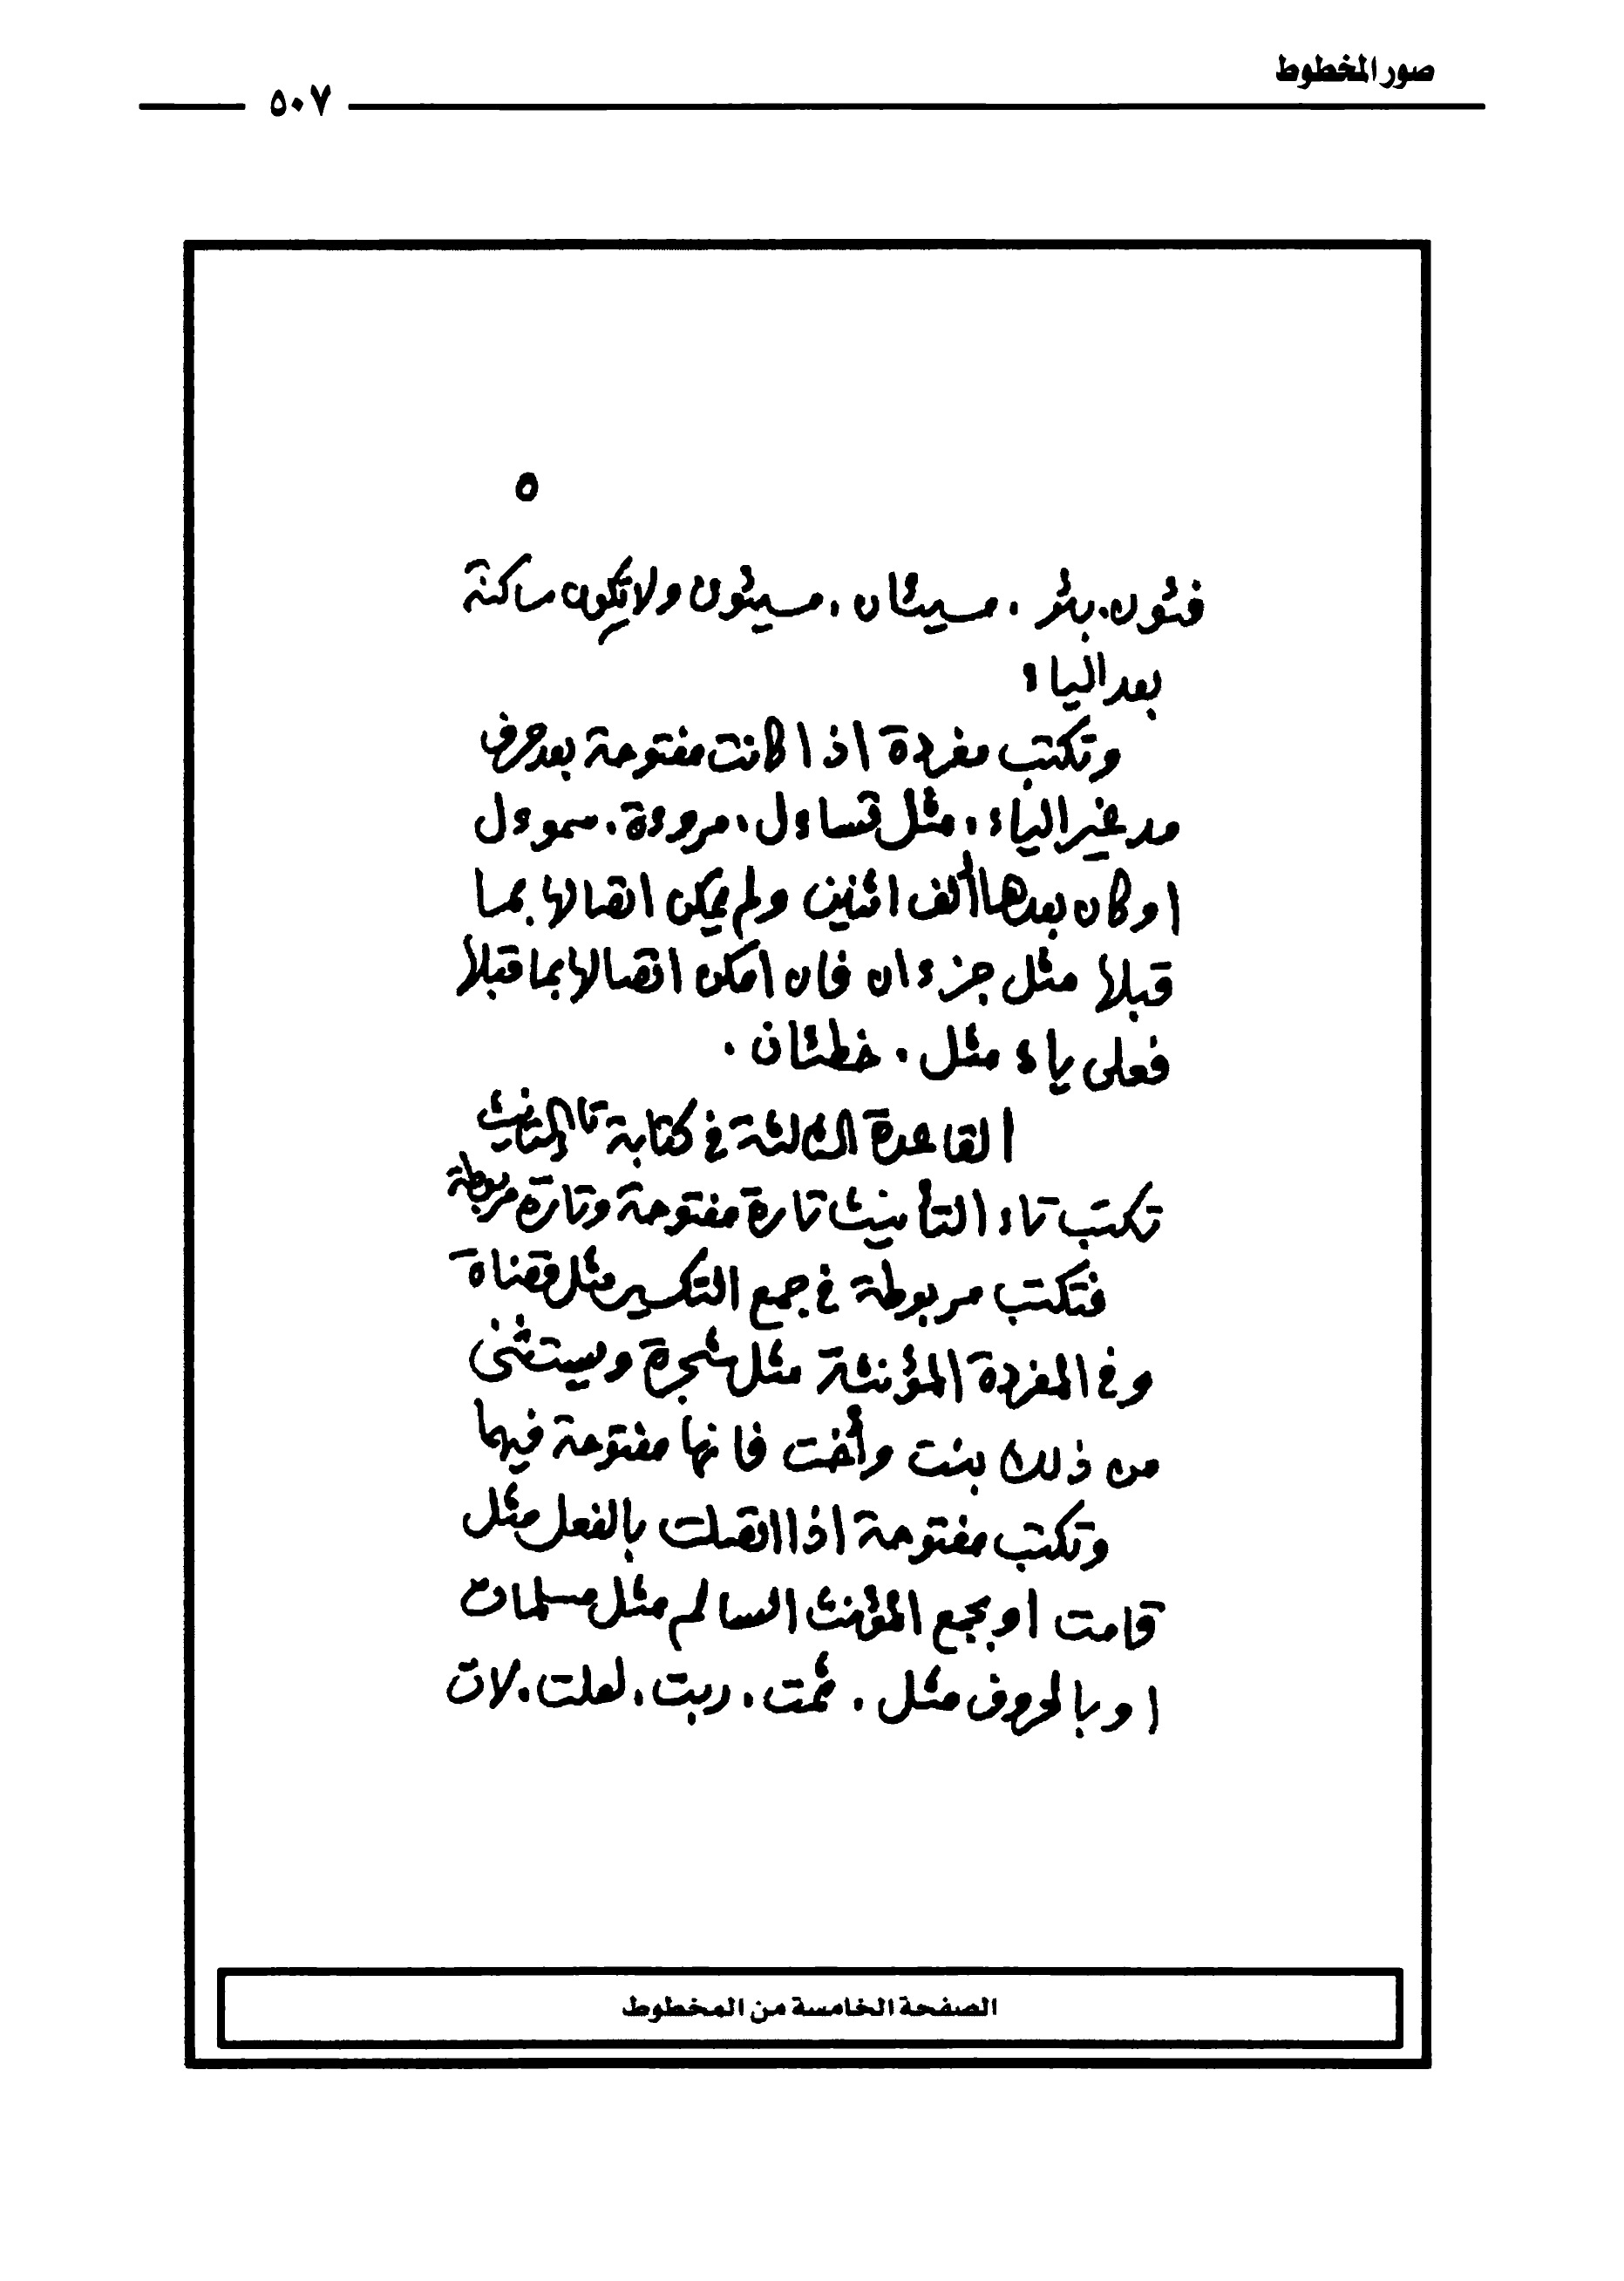 صور المخطوط
٥٠٧
٥
فئون، بئر، مسيئان، مسيئون ولا تكون ساكنة
بعد الياء
وتكتب مفردة اذا كانت مفتوحة بعد حرف
مد غير الياء، مثل تساءل، مروءة، سموءل
او كان بعدها ألف اثنين ولم يمكن اتصالها بما
قبلها مثل جزءان فان امكن اتصالها بما قبلها
فعلى ياء مثل، خطئان.
القاعدة الثالثة في كتابة تاء التأنيث
تكتب تاء التأنيث تارة مفتوحة وتارة مربوطة
فتكتب مربوطة في جمع التكسير مثل قضاة
وفي المفردة المؤنثة مثل شجرة ويستثنى
من ذلك بنت وأخت فانها مفتوحة فيهما
وتكتب مفتوحة اذا اتصلت بالفعل مثل
قامت او بجمع المؤنث السالم مثل مسلمات
او بالحروف مثل، ثمت، ربت، لعلت، لات
الصفحة الخامسة من المخطوط